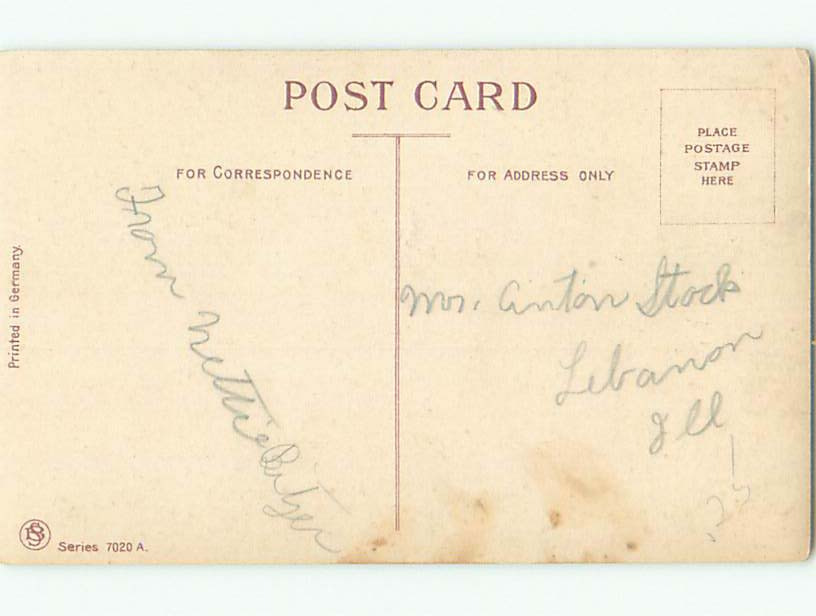 POST CARD
FOR CORRESPONDENCE
FOR ADDRESS ONLY
PLACE
POSTAGE
STAMP
HERE
Printed in Germany.
From Nettie Bitzer
Mr. Anton Stock
Lebanon
Ill
Series 7020 A.